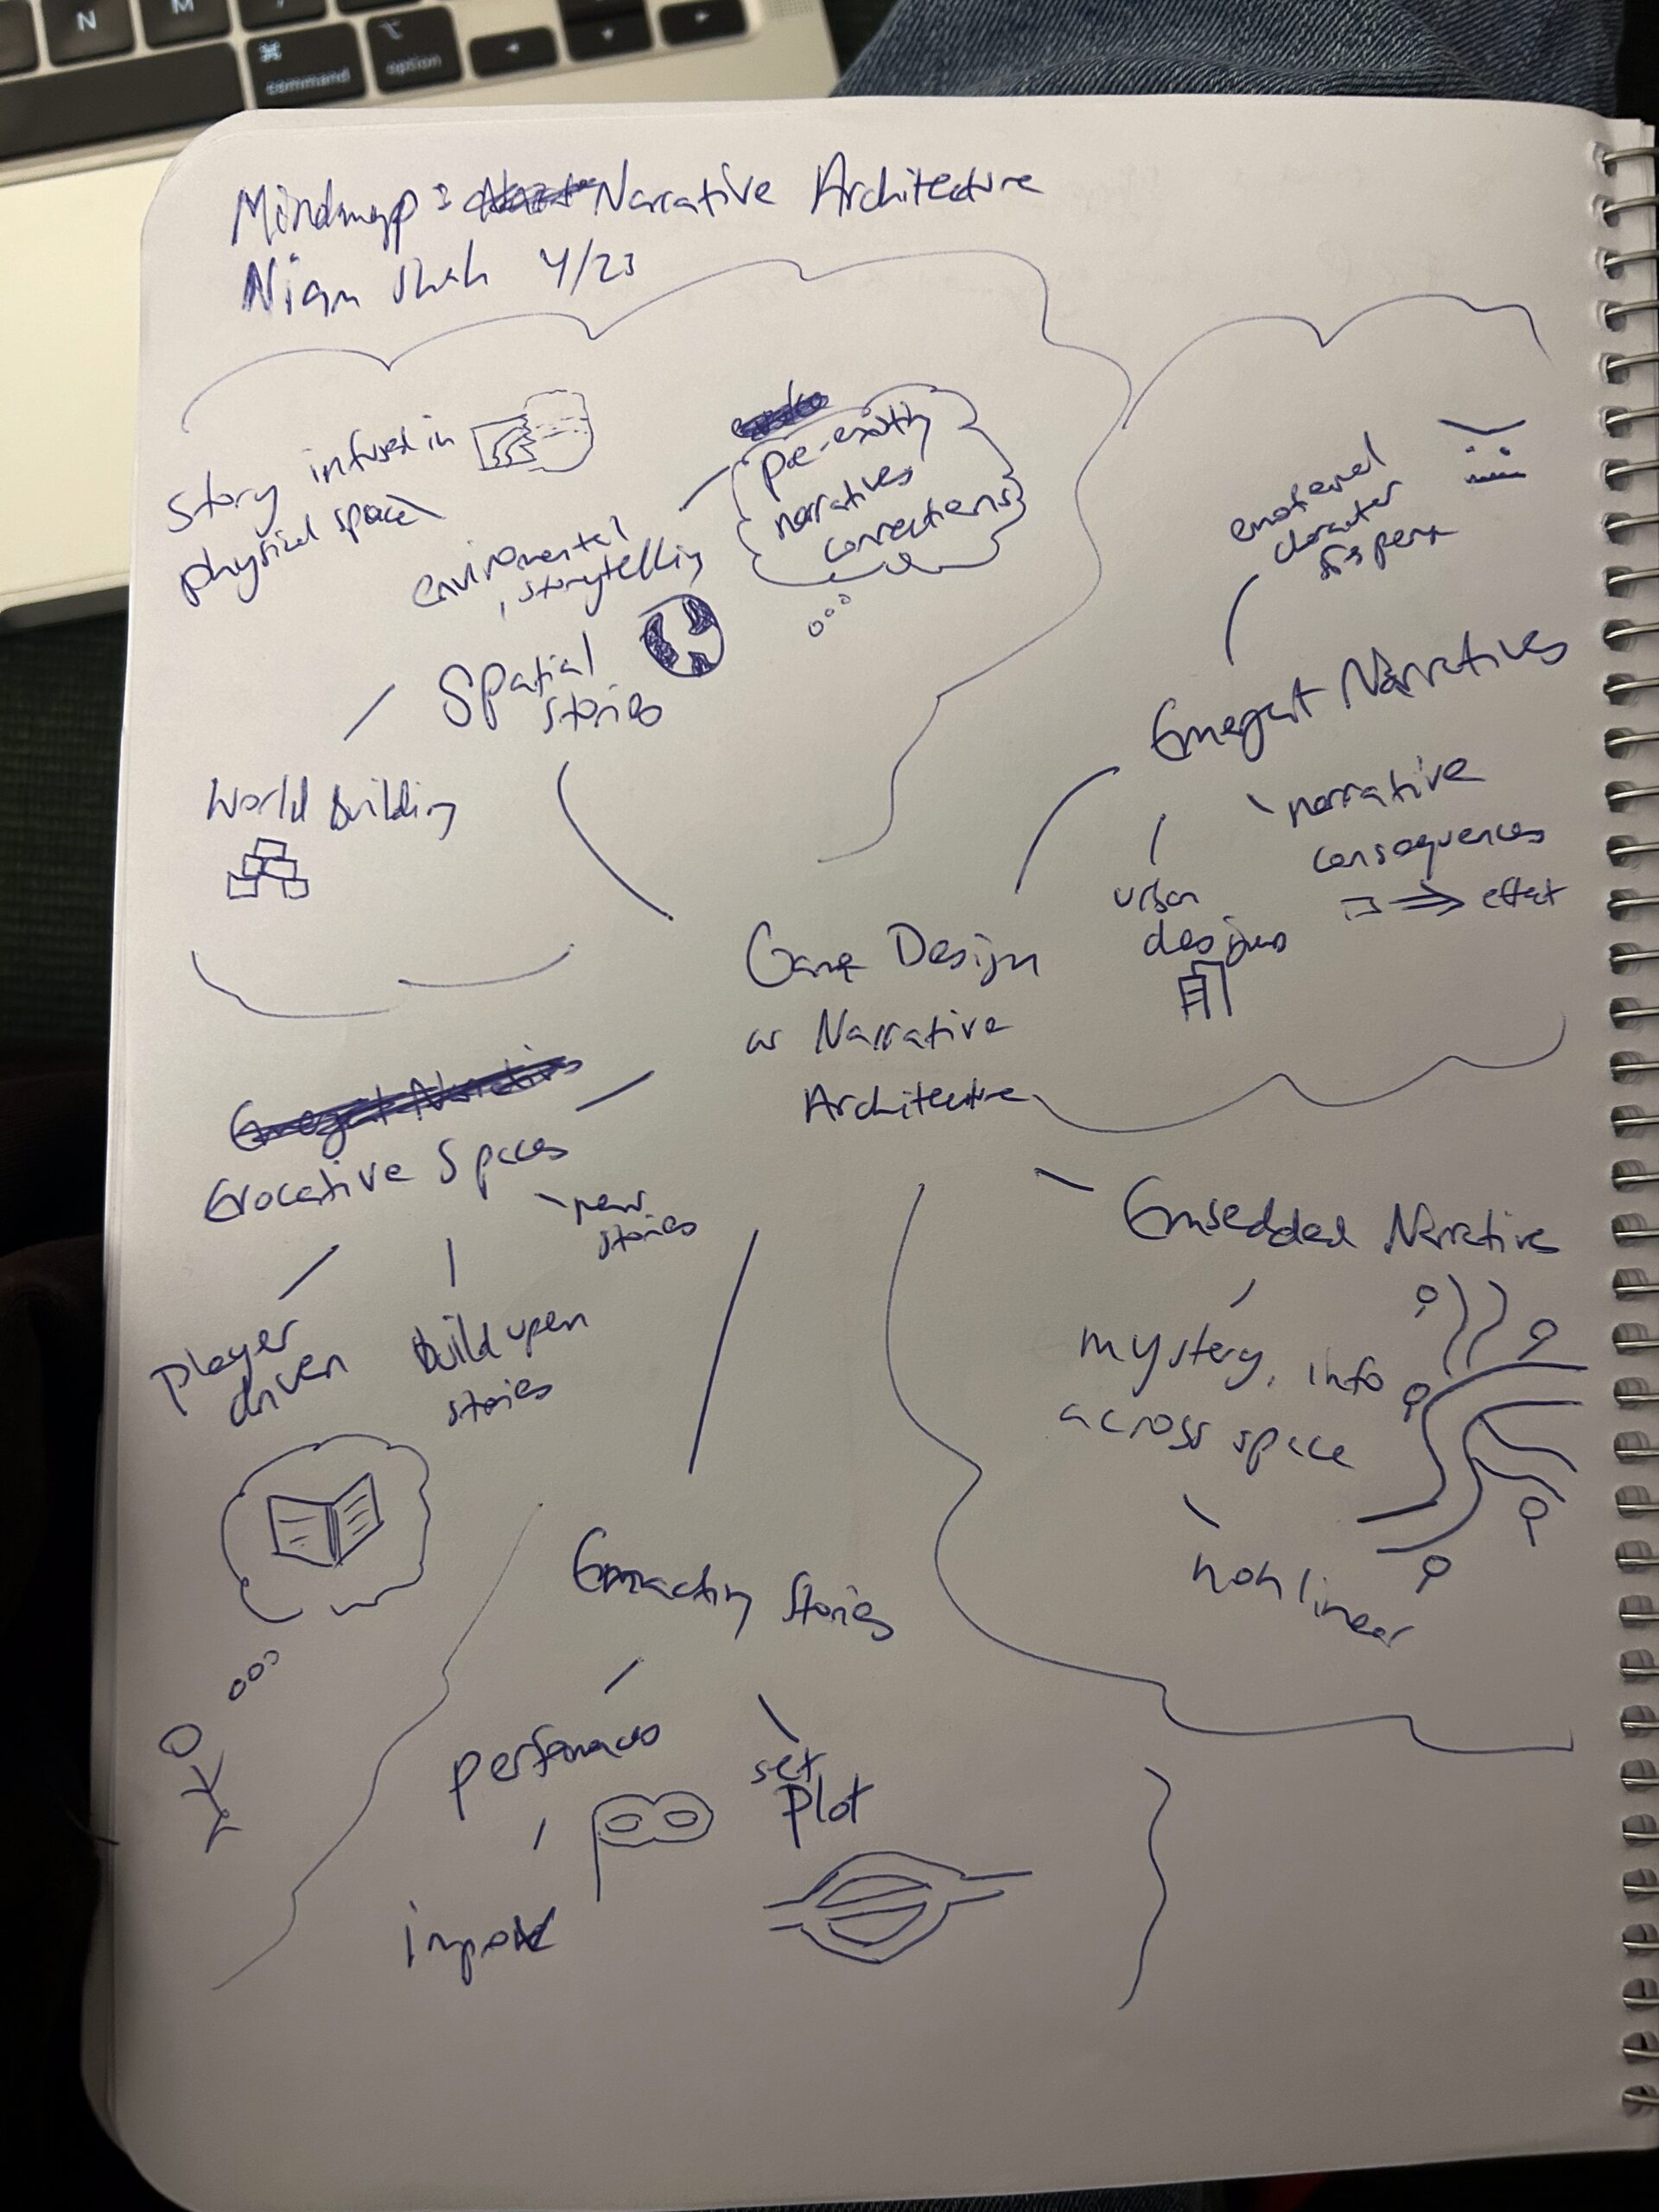 N
M
⌘
command
⌥
option
Mindmap: Narrative Architecture
Shah 4/23
Story infused in
physical space
enviromental
storytelling
pre-existing
narratives
connections
Spatial
stories
World Building
emotional
character
Emergent Narratives
narrative
consequences
⇒ effect
urban
designs
Game Design
as Narrative
Architecture
Evocative Spaces
new
stories
player
driven
Build upon
stories
Embedded Narratives
mystery, info
across space
nonlinear
Enacting Stories
set
plot